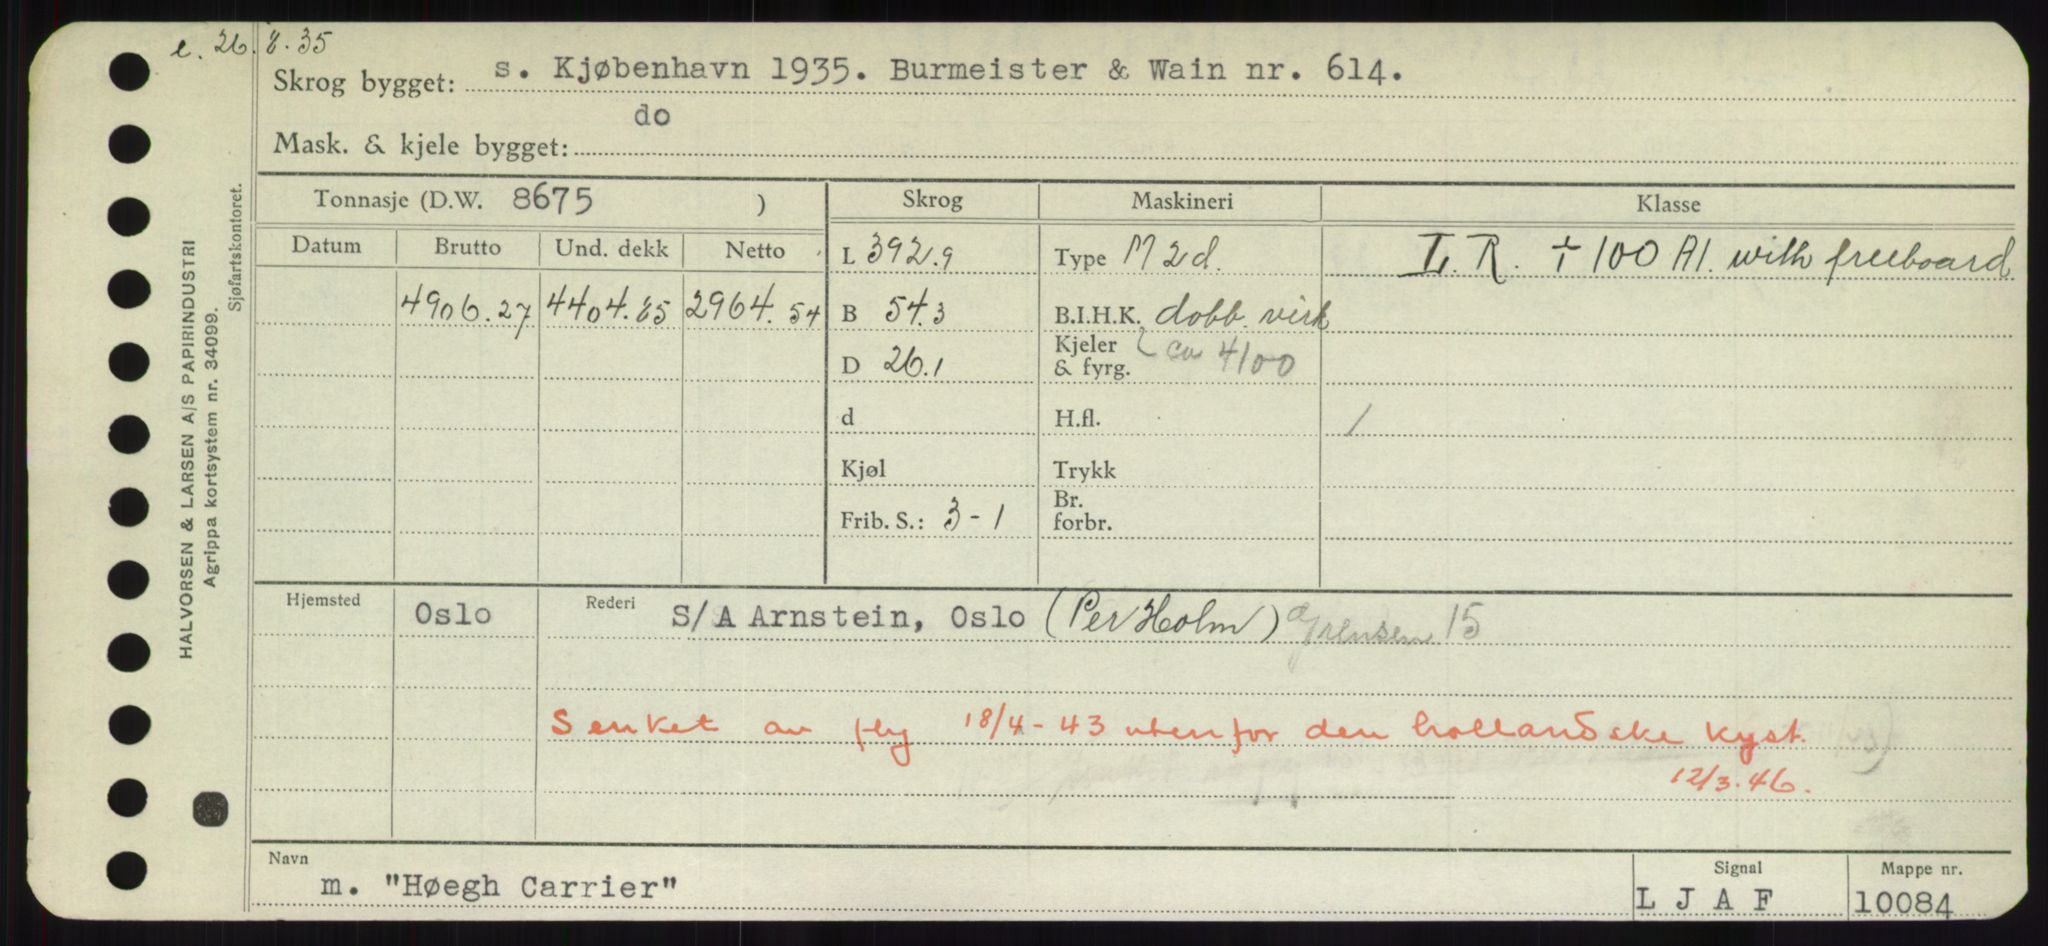 e. 26.8.35
Skrog bygget: s. Kjøbenhavn 1935. Burmeister & Wain nr. 614.
Mask. & kjele bygget: do
Tonnasje (D.W. 8675 ) Skrog Maskineri Klasse
Datum Brutto Und. dekk Netto L 392.9 Type M 2d. L. R. + 100 A1. with freeboard
4906.27 4404.85 2964.54 B 54.3 B.I.H.K. dobb. virk
D 26.1 Kjeler & fyrg. ca 4100
d H.fl. /
Kjøl Trykk
Frib. S.: 3-1 Br. forbr.
Hjemsted Oslo Rederi S/A Arnstein, Oslo (Per Holm) Grensen 15
Senket av fly 18/4-43 utenfor den hollandske kyst.
12/3.46.
Navn m. "Høegh Carrier" Signal L J A F Mappe nr. 10084
HALVORSEN & LARSEN A/S PAPIRINDUSTRI
Agrippa kortsystem nr. 34099.
Sjøfartskontoret.